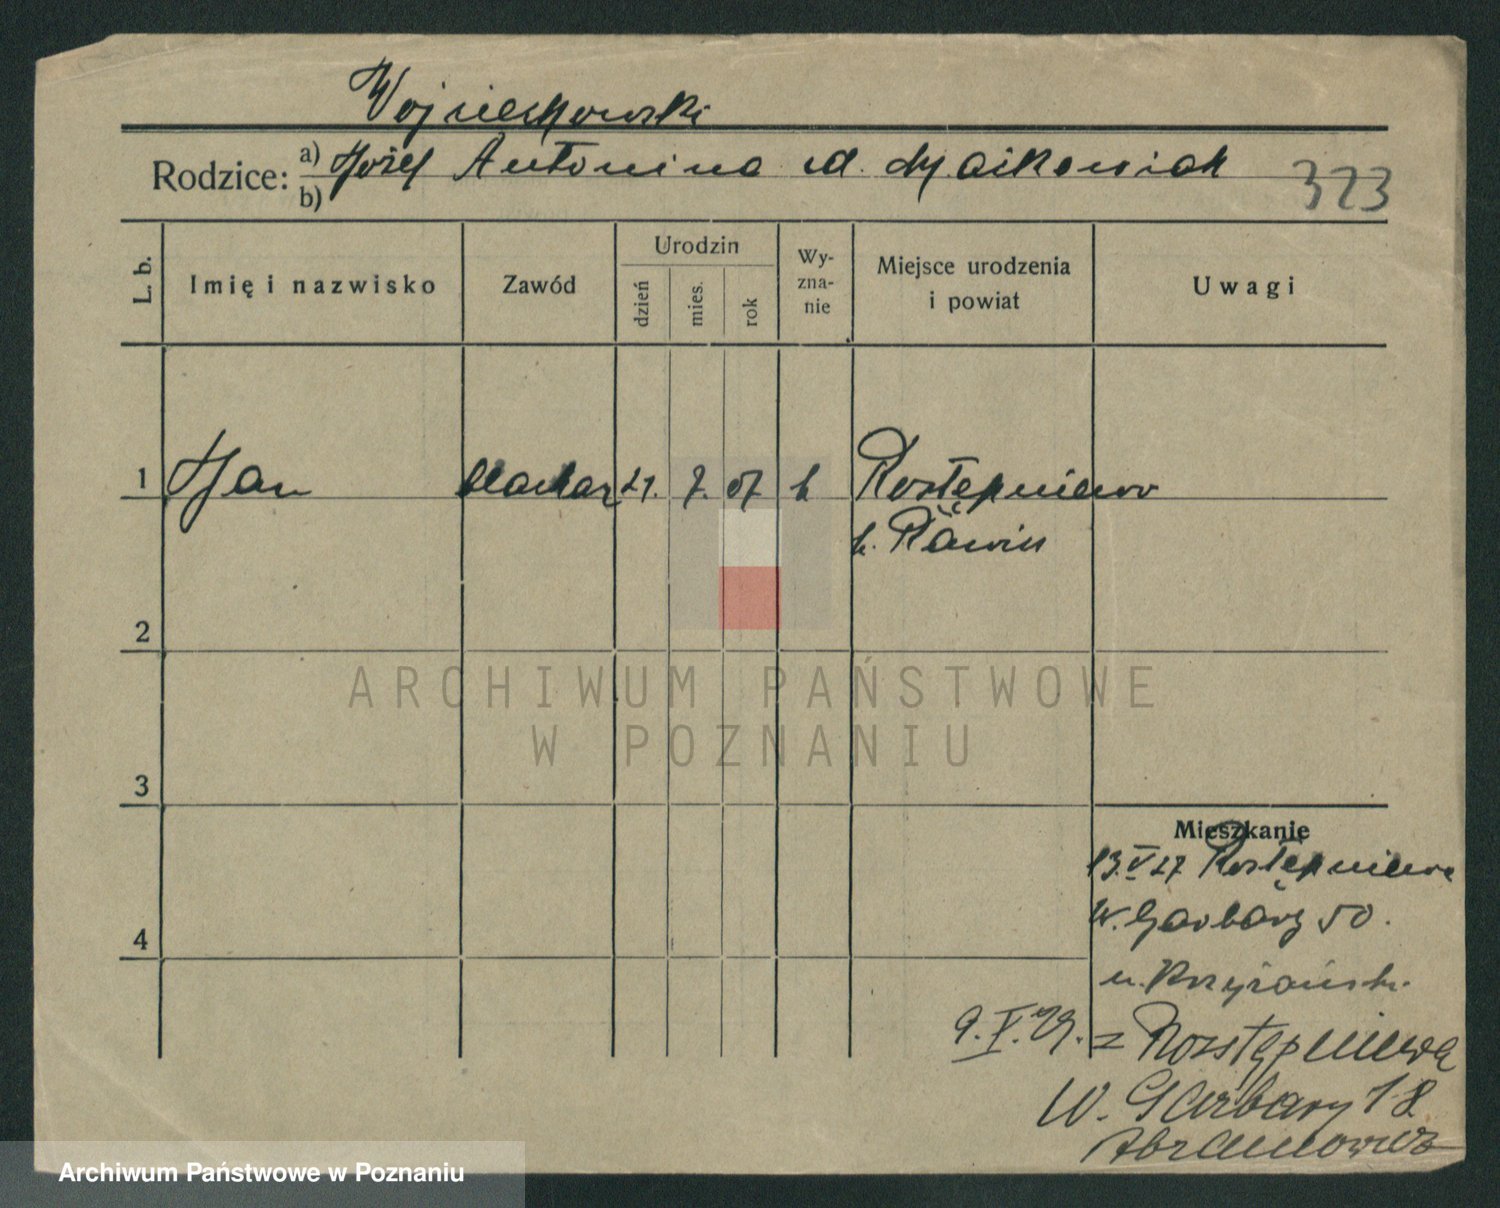 Wojciechowski
Rodzice: a) Józef Antonina z d. Majkowiak
b)
323
L. b. Imię i nazwisko Zawód Urodzin dzień mies. rok Wy-zna-nie Miejsce urodzenia i powiat Uwagi
1 Jan 21. 7. 07 k Rostępniewo
p. Rawicz
2
3
4
Mieszkanie
13.V 27 Rostępniewa
W. Garbary 50.
u.
9.V.29. z Rozstępniewa
W. Garbary 18
Abramowicz
ARCHIWUM PAŃSTWOWE
W POZNANIU
Archiwum Państwowe w Poznaniu